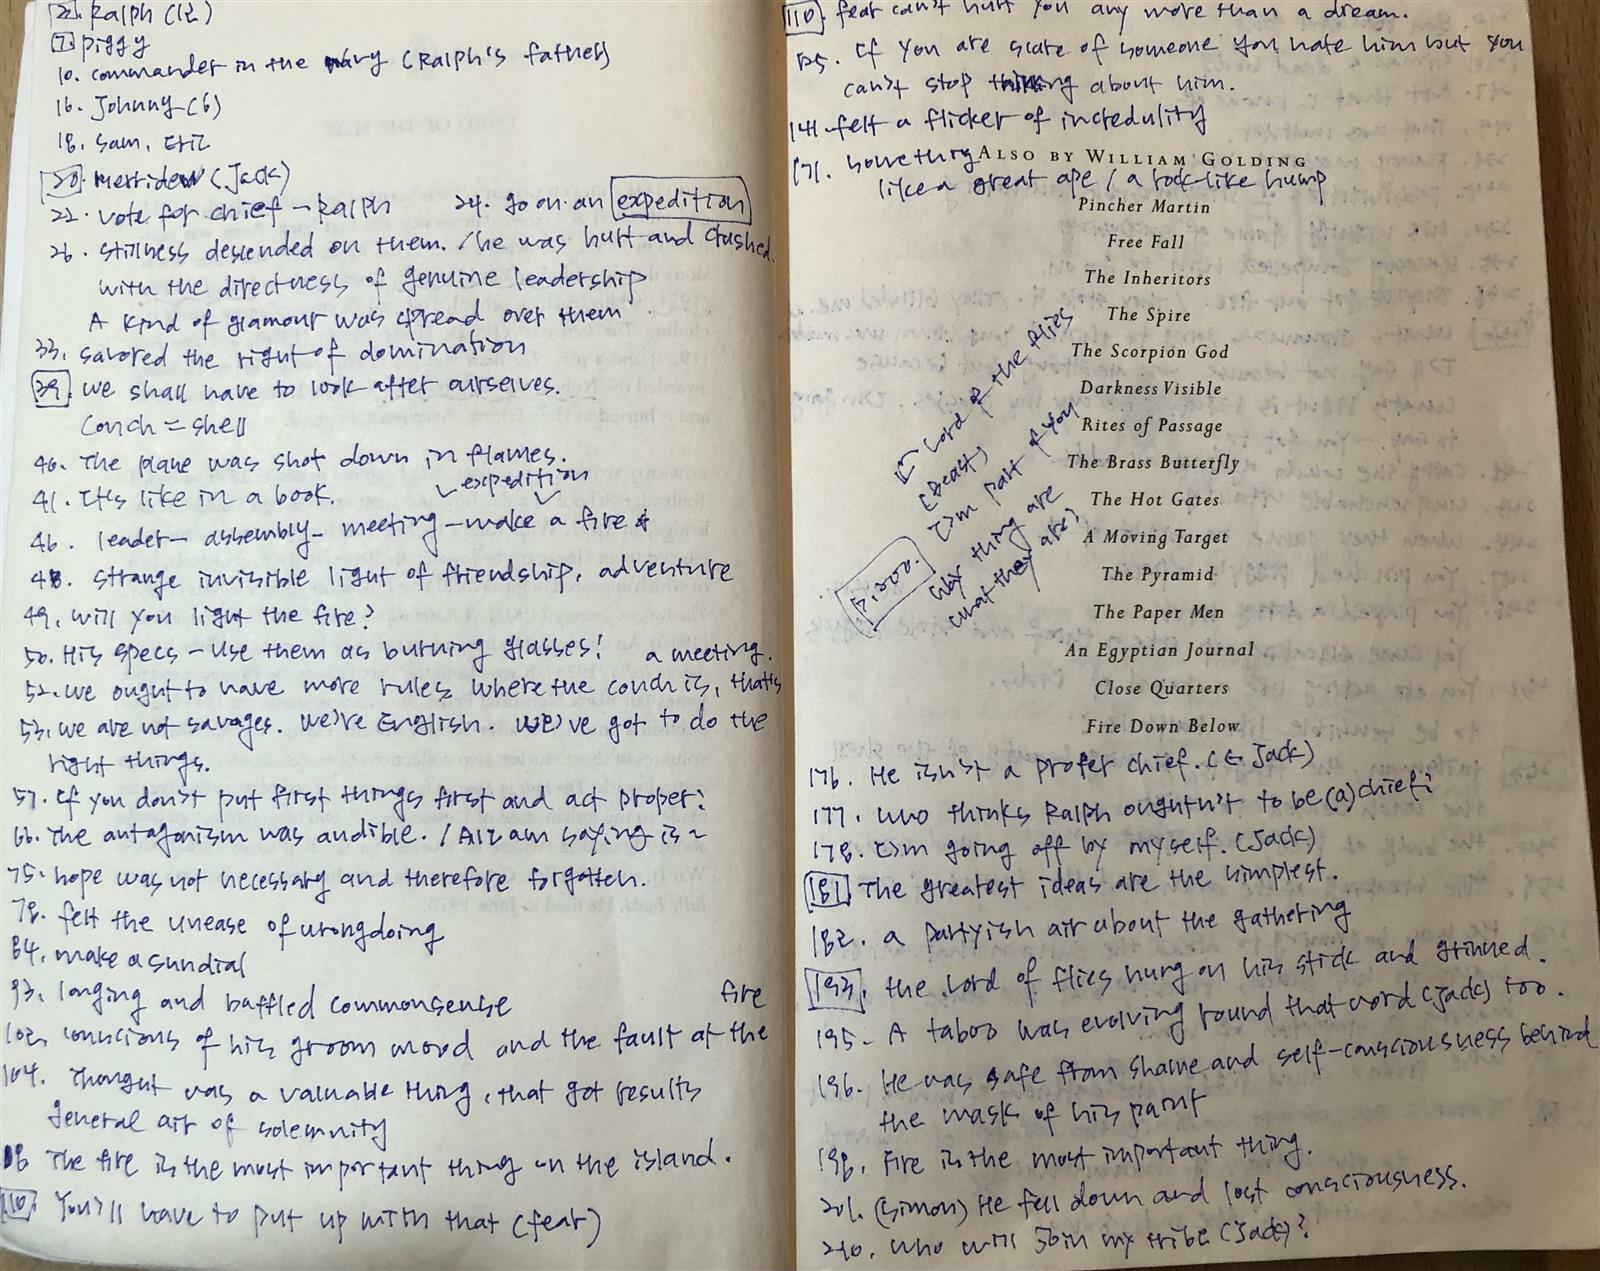 2. Ralph (12)
7. piggy
10. commander in the navy (Ralph's father)
16. Johnny (6)
18. Sam, Eric
20. merridew (Jack)
22. vote for chief - Ralph 24. go on an expedition
26. stillness descended on them. / he was hurt and crushed
with the directness of genuine leadership
A kind of glamour was spread over them
33. savored the right of domination
39. we shall have to look after ourselves.
conch = shell
40. The plane was shot down in flames.
41. It's like in a book. expedition
46. leader - assembly - meeting - make a fire
48. strange invisible light of friendship, adventure
49. will you light the fire?
50. His specs - use them as burning glasses! a meeting.
52. we ought to have more rules where the conch is, that's
53. we are not savages. We're English. We've got to do the
right things.
57. If you don't put first things first and act proper?
66. The antagonism was audible. / All I am saying is ~
75. hope was not necessary and therefore forgotten.
78. felt the unease of wrongdoing
84. make a sundial
93. longing and baffled commonsense fire
102. conscious of his groom mood and the fault at the
104. Thought was a valuable thing, that got results
general air of solemnity
The fire is the most important thing on the island.
110. You'll have to put up with that (fear)
110. fear can't hurt you any more than a dream.
125. If you are scare of someone you hate him but you
can't stop thinking about him.
141. felt a flicker of incredulity
171. something
like a great ape / a rock-like hump
ALSO BY WILLIAM GOLDING
Pincher Martin
Free Fall
The Inheritors
The Spire
The Scorpion God
Darkness Visible
Rites of Passage
The Brass Butterfly
The Hot Gates
A Moving Target
The Pyramid
The Paper Men
An Egyptian Journal
Close Quarters
Fire Down Below
Lord of the flies
(beast)
I'm part of you
P.200.
why thing are
what they are)
176. He isn't a proper chief. (← Jack)
177. who thinks Ralph oughtn't to be (a) chief?
178. I'm going off by myself. (Jack)
181. The greatest ideas are the simplest.
182. a partyish air about the gathering
193. the Lord of flies hung on his stick and grinned.
195. A taboo was evolving round that word (Jack) too.
196. He was safe from shame and self-consciousness behind
the mask of his paint
198. Fire is the most important thing.
201. (Simon) He fell down and lost consciousness.
210. who will join my tribe (Jack)?